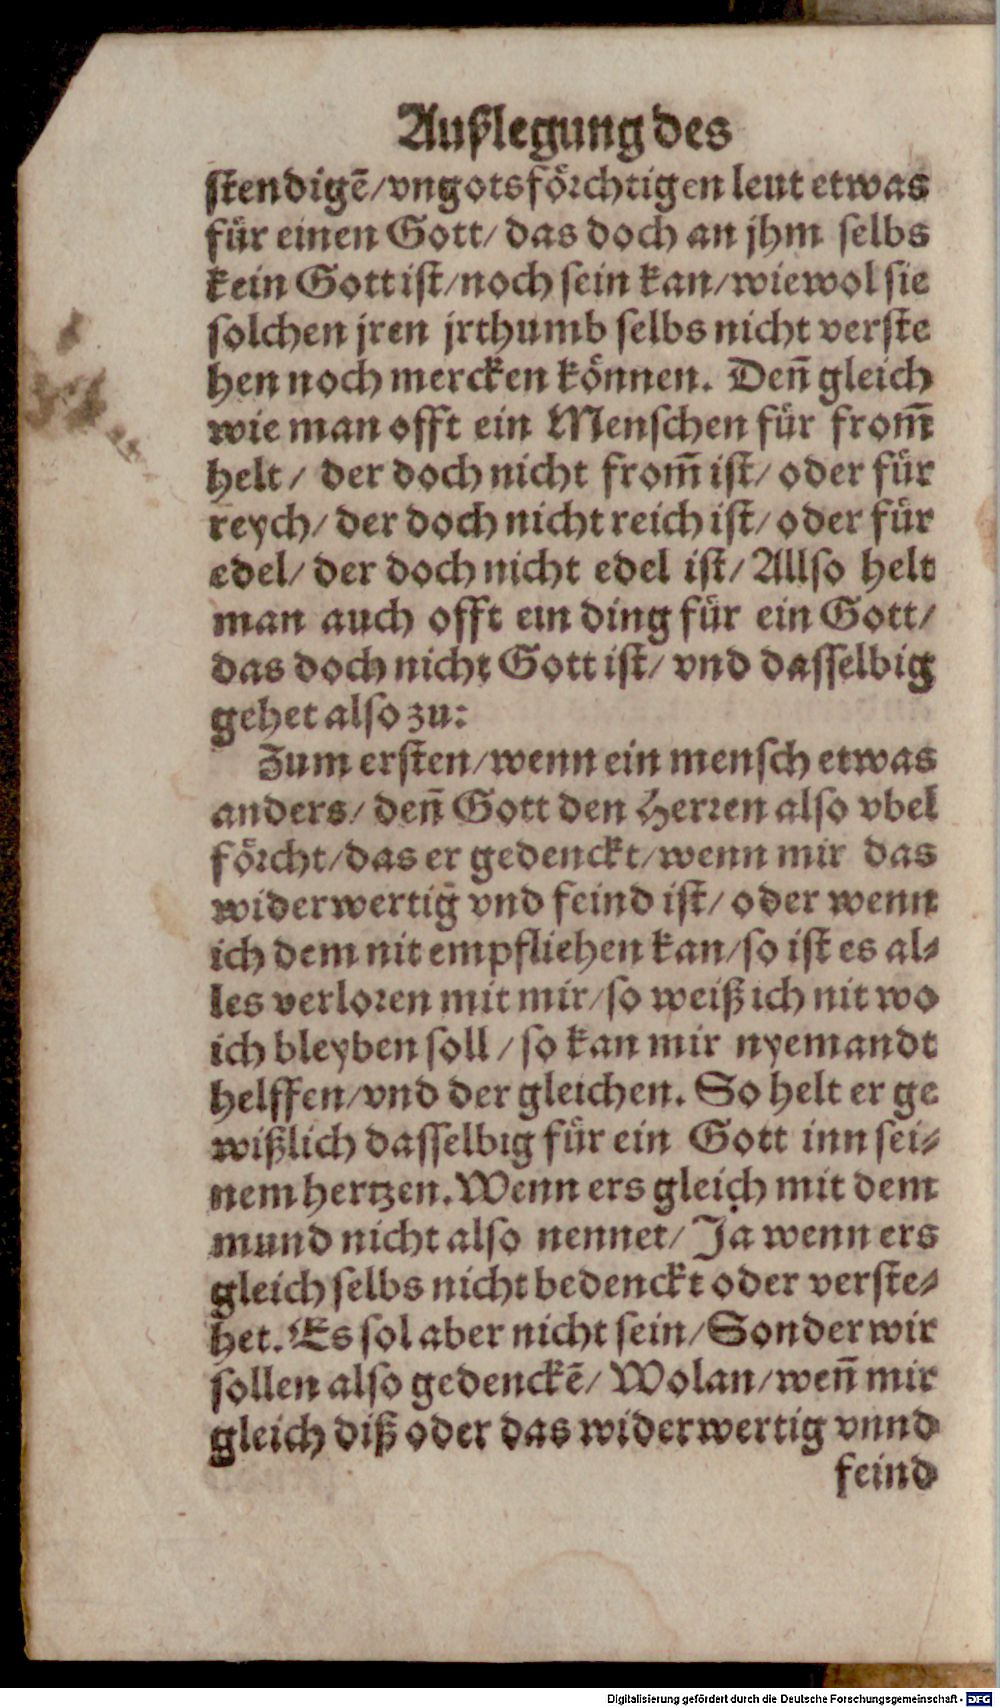 Außlegung des
stendigē/vngotsförchtigen leut etwas
für einen Gott/ das doch an jhm selbs
kein Gott ist/noch sein kan/wiewol sie
solchen jren jrthumb selbs nicht verste
hen noch mercken können. Deñ gleich
wie man offt ein Menschen für from̃
helt/ der doch nicht from̃ ist/ oder für
reych/ der doch nicht reich ist/ oder für
edel/ der doch nicht edel ist/ Allso helt
man auch offt ein ding für ein Gott/
das doch nicht Gott ist/ vnd dasselbig
gehet also zu:
Zum ersten/wenn ein mensch etwas
anders/ deñ Gott den Herren also vbel
förcht/das er gedenckt/wenn mir das
widerwertig̃ vnd feind ist/ oder wenn
ich dem nit empfliehen kan/so ist es al⸗
les verloren mit mir/so weiß ich nit wo
ich bleyben soll/so kan mir nyemandt
helffen/vnd der gleichen. So helt er ge
wißlich dasselbig für ein Gott inn sei⸗
nem hertzen. Wenn ers gleich mit dem
mund nicht also nennet/ Ja wenn ers
gleich selbs nicht bedenckt oder verste⸗
het. Es sol aber nicht sein/Sonder wir
sollen also gedenckē/ Wolan/weñ mir
gleich diß oder das widerwertig vnnd
feind
Digitalisierung gefördert durch die Deutsche Forschungsgemeinschaft - DFG